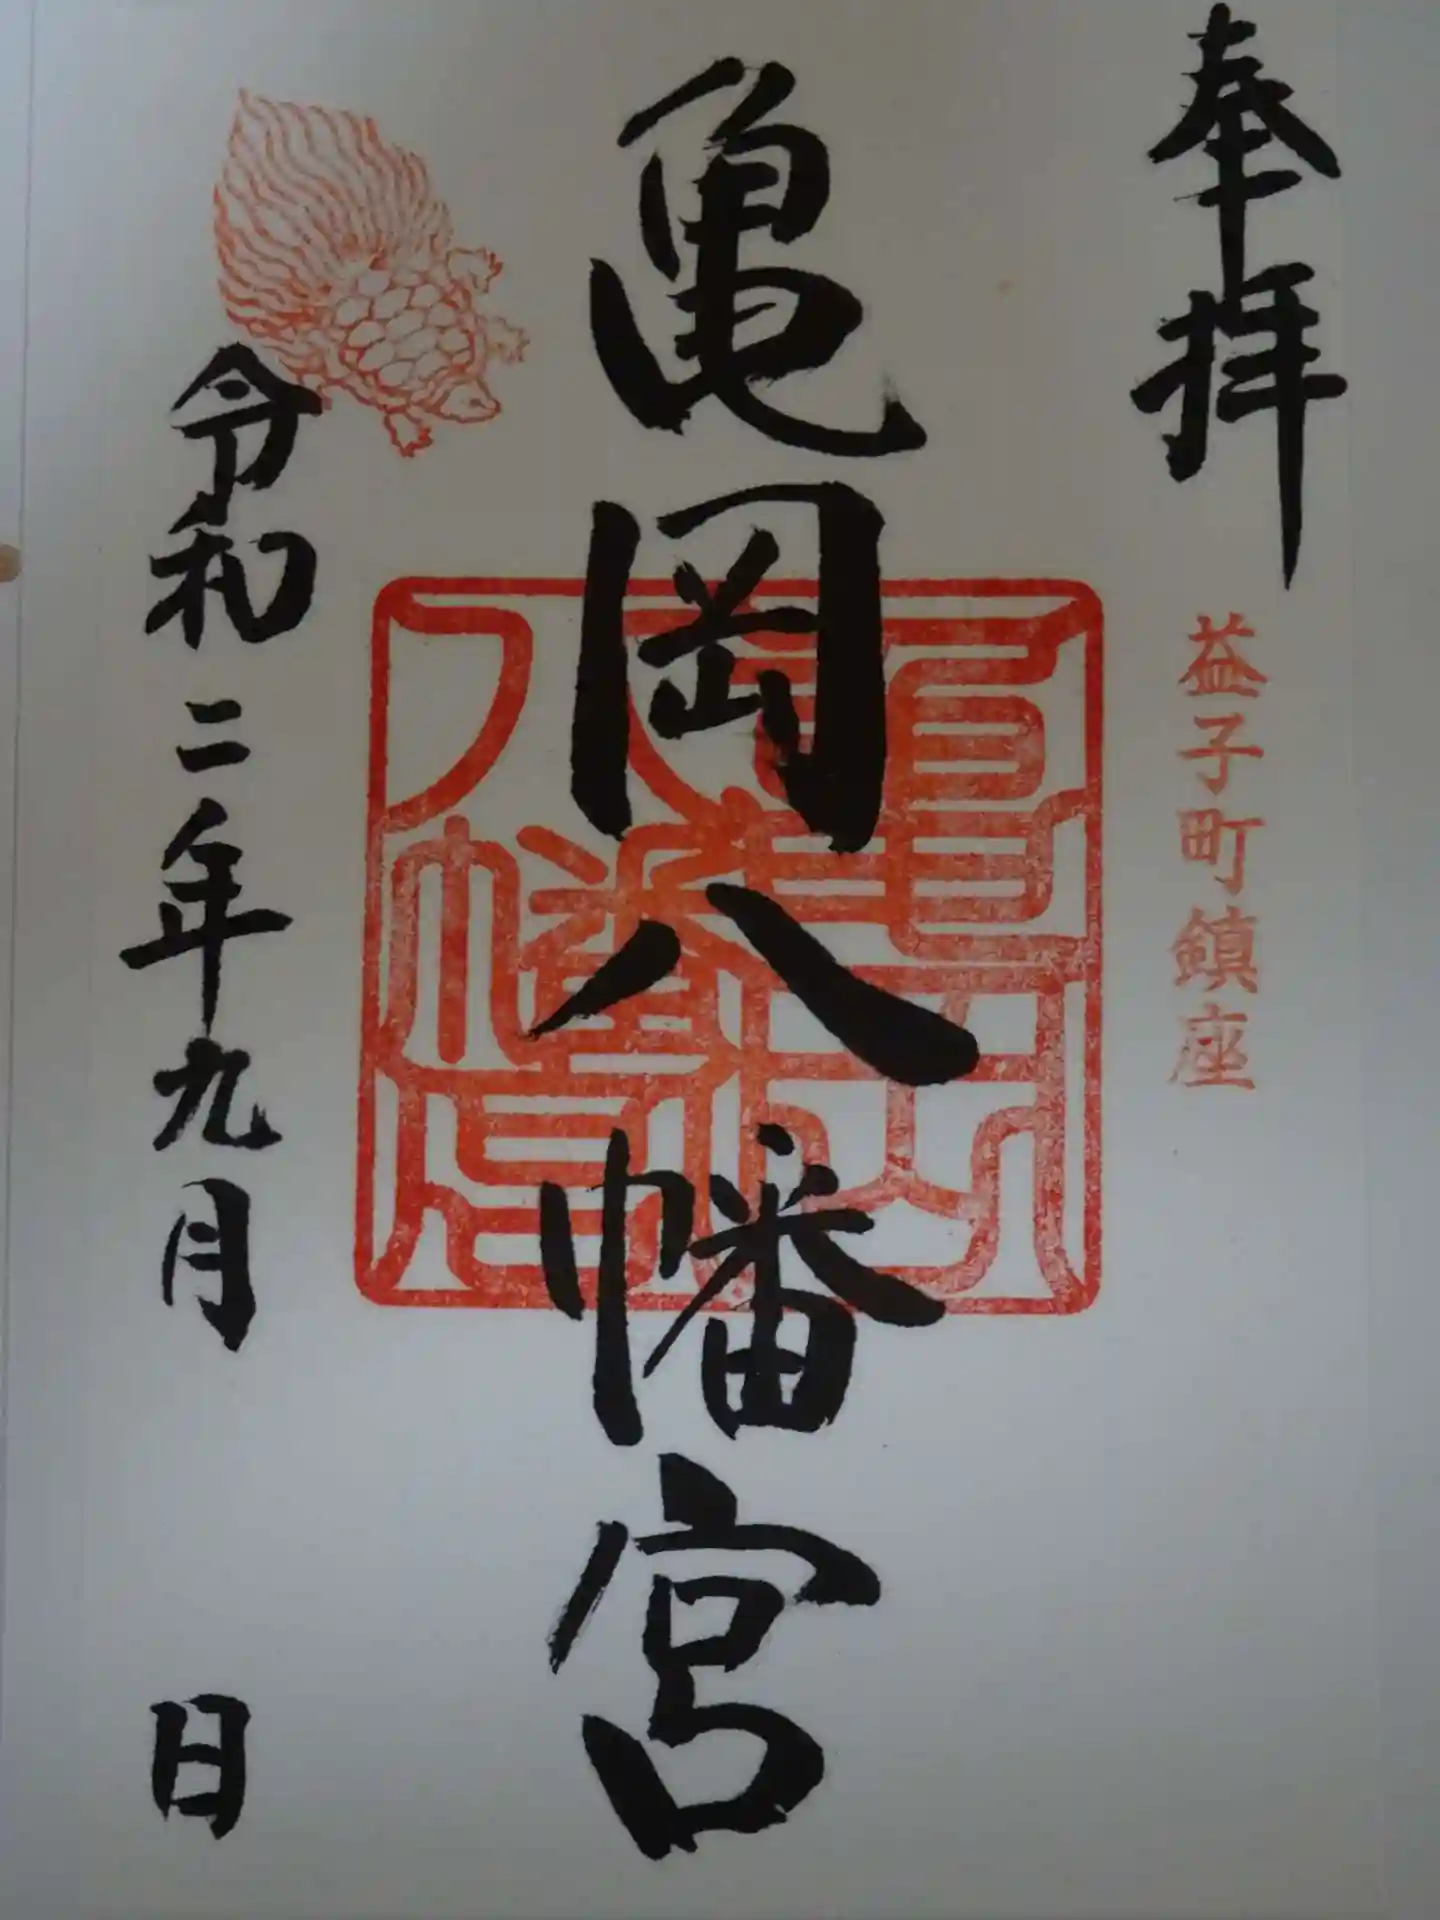 奉拝
益子町鎮座
亀岡八幡宮
令和二年九月 日